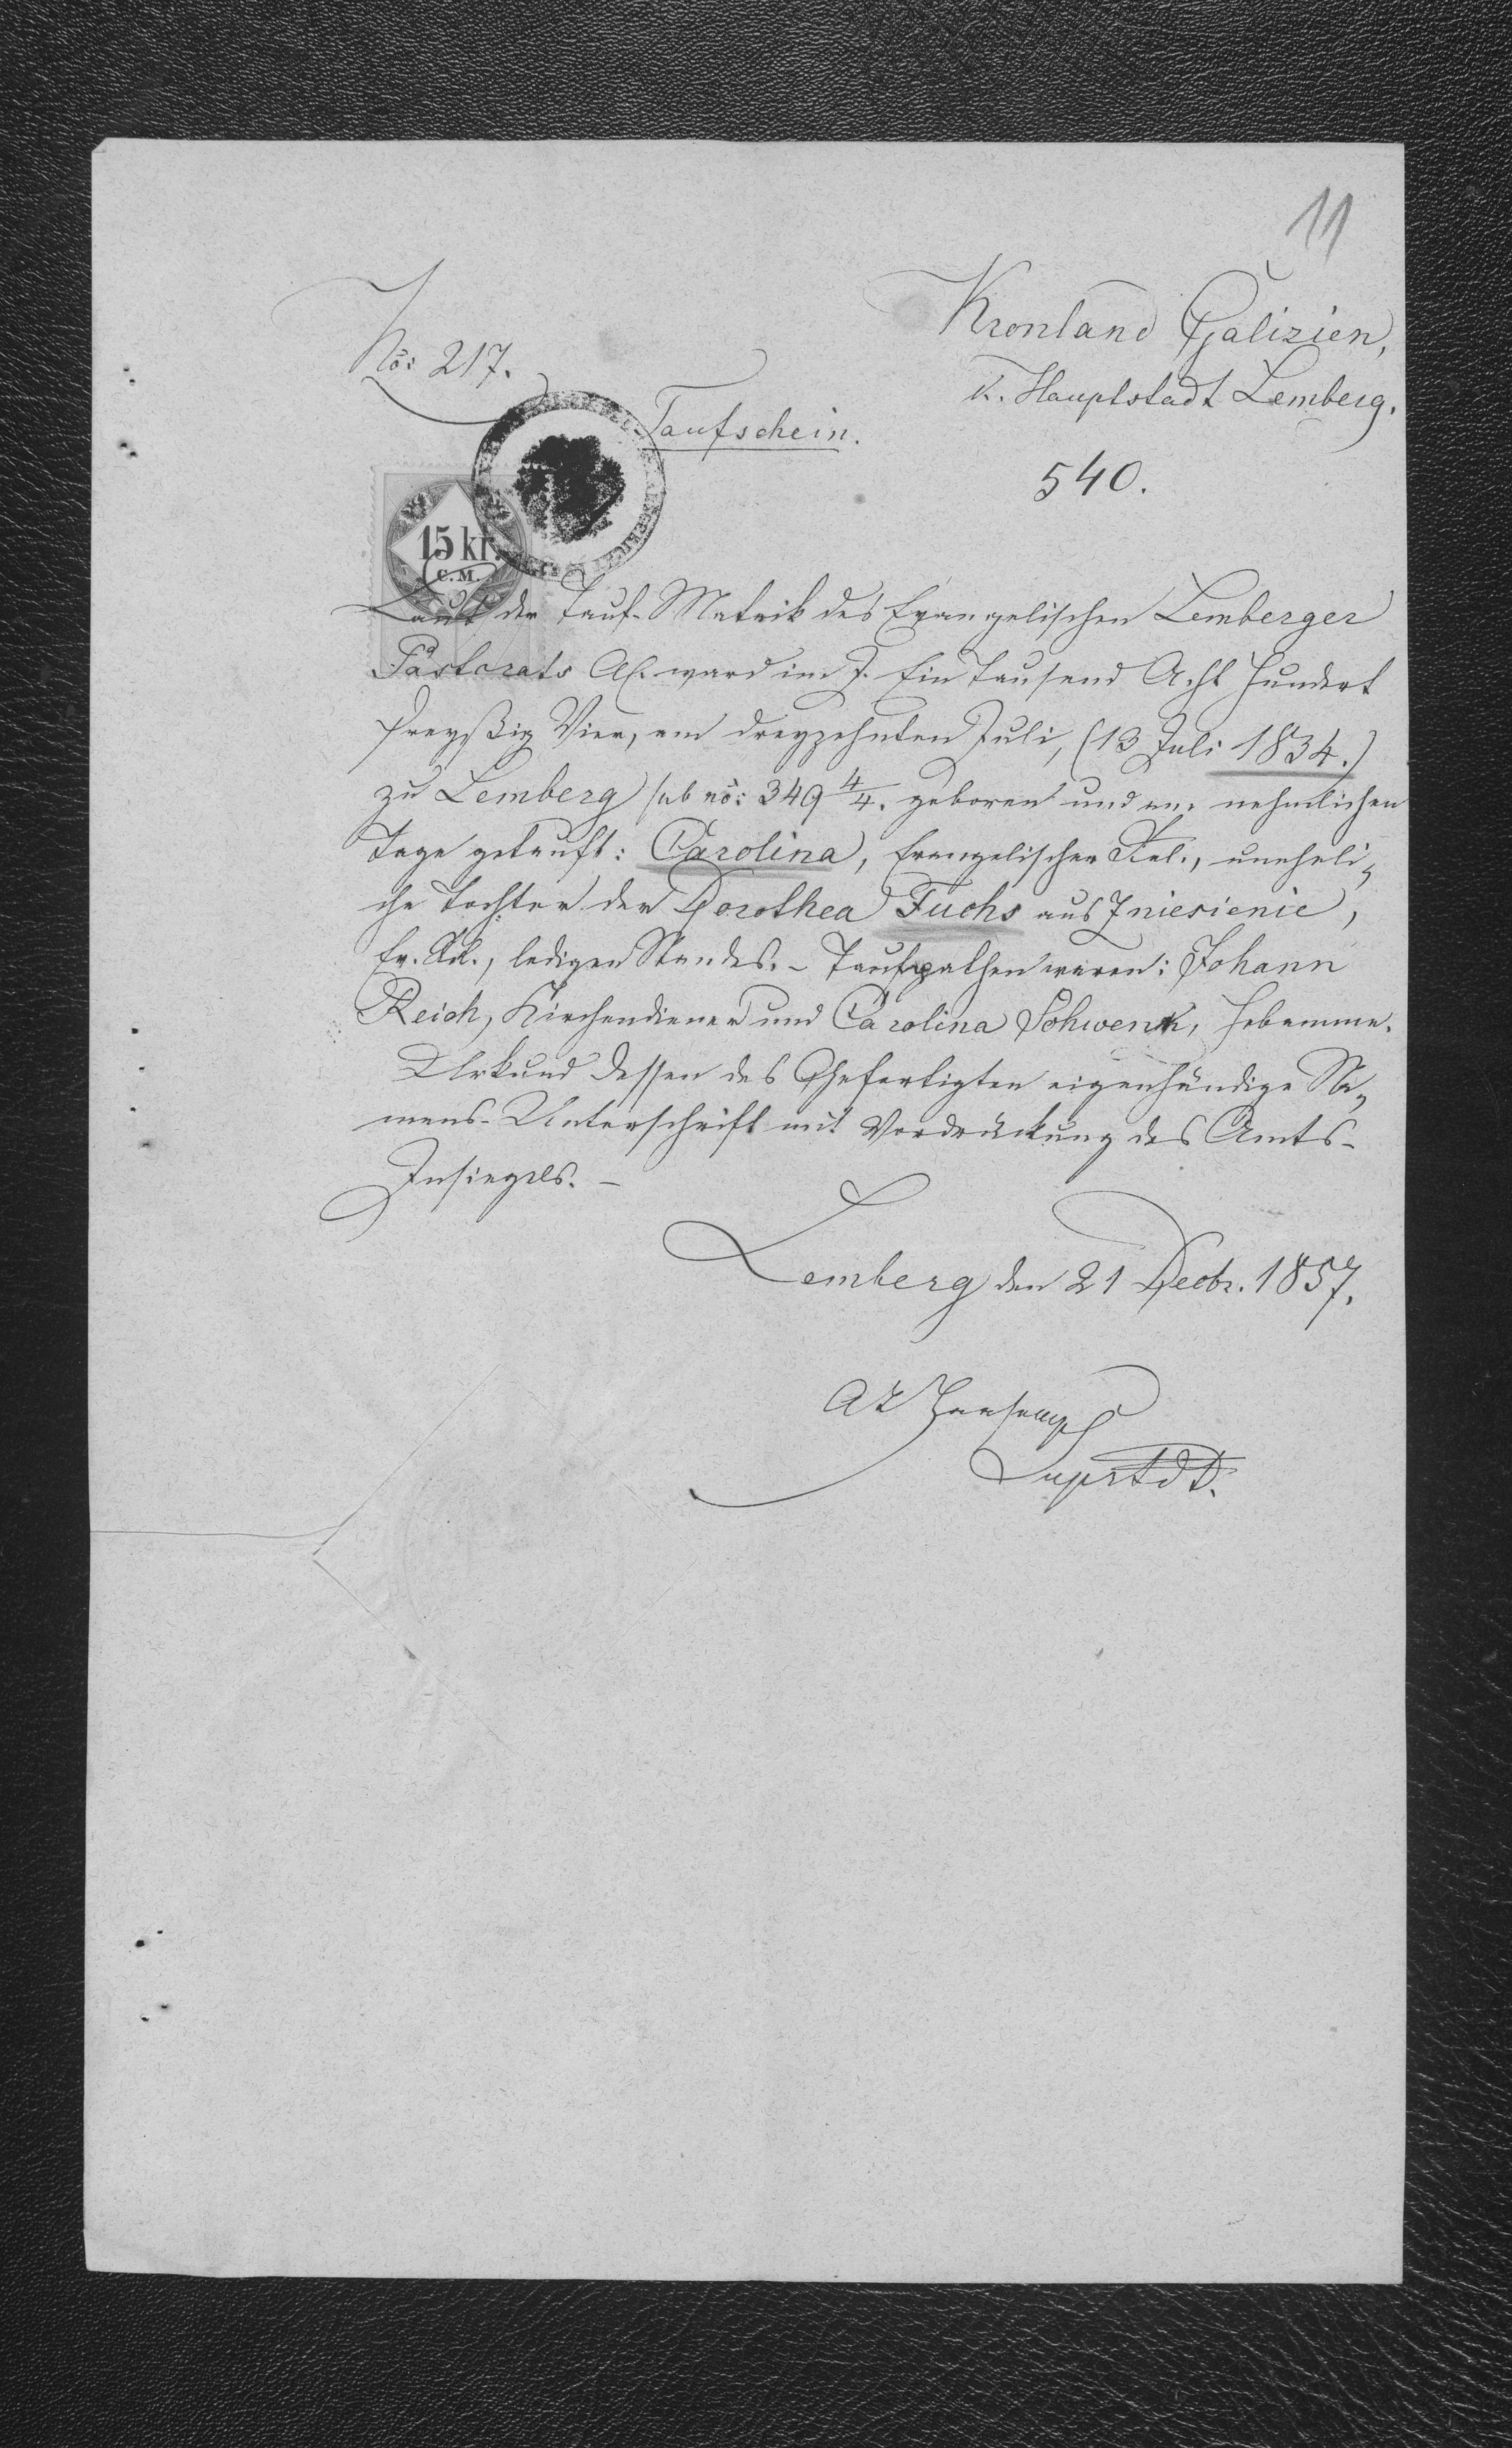 11
Kronland Galizien,
No: 217.
K. Hauptstadt Lemberg.
Taufschein.
540.
15 kr.
C.M.
Laut der Tauf-Matrik des Evangelischen Lemberger
Pastorats A.C. ward im J. Ein Tausend Acht Hundert
Dreyßig Vier, am dreyzehnten Juli, (13 Juli 1834.)
zu Lemberg sub no: 349 4/4. geboren und am nehmlichen
Tage getauft: Carolina, Evangelischer Rel., uneheli-
che Tochter der Dorothea Fuchs aus Zniesienie,
Ev. Rel., ledigen Standes. - Taufpathen waren: Johann
Reich, Kirchendiener und Carolina Schwenk, Hebamme.
Urkund dessen des Gefertigten eigenhändige Na-
mens-Unterschrift mit Vordrückung des Amts-
Insiegels. -
Lemberg den 21 Decbr. 1857.
Suprtdt.